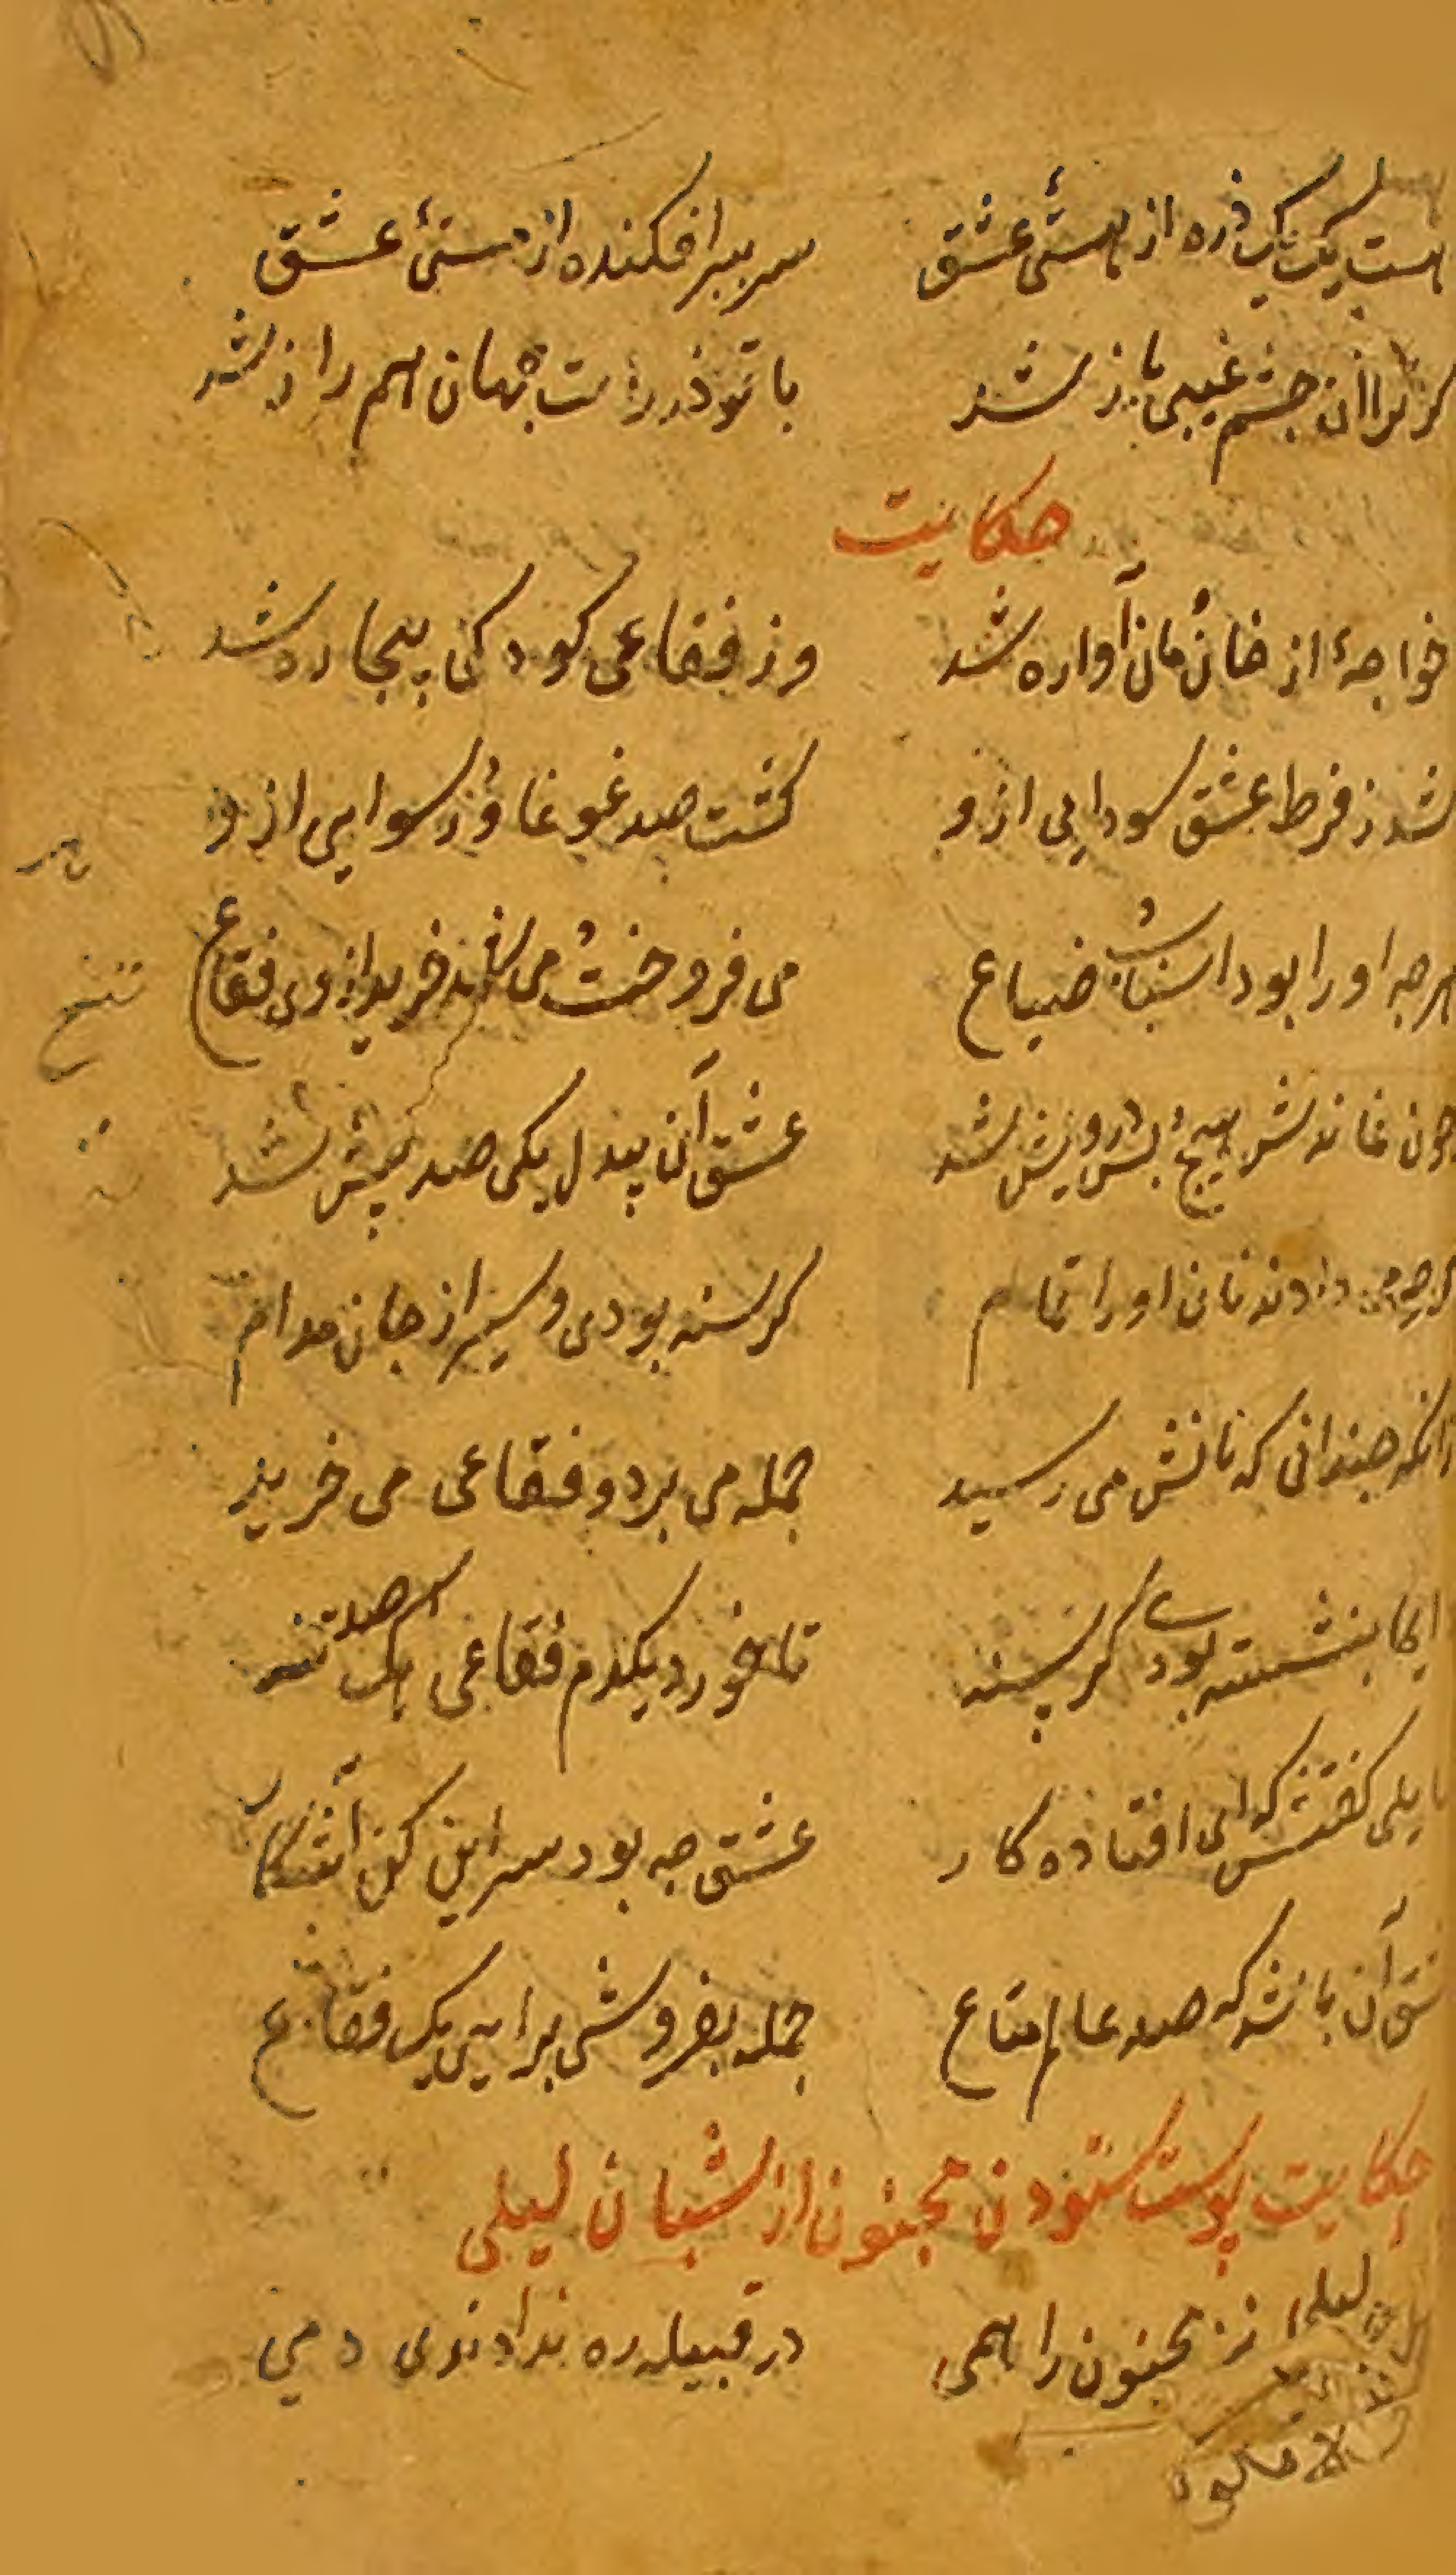 هست یک یک ذره از هستئ عشق سر ببر افکنده از مستئ عشق
کر ترا ان چشم غیبی باز شد با تو ذرات جهان هم راز شد
حکایت
خواجهٔ از خان مان آواره شد وز فقاعی کودکی بیچاره شد
شد ز فرط عشق سودایی ازو کشت صد غوغا و رسوایی ازو
هرچه او را بود اسباب و ضیاع می فروخت و می خرید از وی فقاع
چون نماندش هیچ بس درویش شد عشق آن بیدل یکی صد بیش شد
کرچه می دادند نان او را تمام کرسنه بودی و سیر از جان مدام
زانکه چندانی که نانش می رسید جمله می برد و فقاعی می خرید
دایما بنشسته بودی کرسنه تا خورد یکدم فقاعی صد تنه
سایلی کفتش که ای افتاده کار عشق چه بود سر این کن آشکار
عشق آن باشد که صد عالم متاع جمله بفروشی برایی یک فقاع
حکایت پوست ستودن مجنون از شبان لیلی
اهل لیلی نیز مجنون را همی در قبیله ره ندادندی دمی